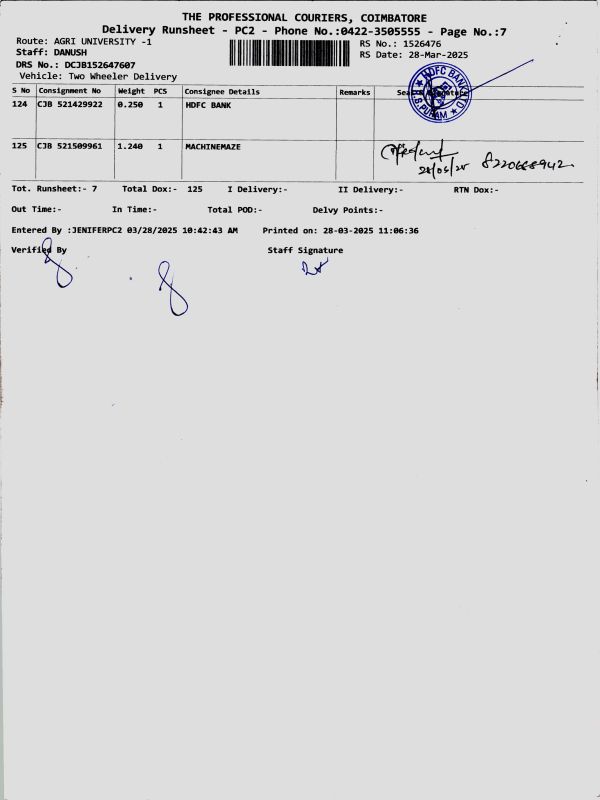 THE PROFESSIONAL COURIERS, COIMBATORE
Delivery Runsheet - PC2 - Phone No.:0422-3505555 - Page No.:7
Route: AGRI UNIVERSITY -1 RS No.: 1526476
Staff: DANUSH RS Date: 28-Mar-2025
DRS No.: DCJB152647607
Vehicle: Two Wheeler Delivery
S No Consignment No Weight PCS Consignee Details Remarks
HDFC BANK LTD
R.S. PURAM
124 CJB 521429922 0.250 1 HDFC BANK
125 CJB 521509961 1.240 1 MACHINEMAZE
28/03/25 8220668942
Tot. Runsheet:- 7 Total Dox:- 125 I Delivery:- II Delivery:- RTN Dox:-
Out Time:- In Time:- Total POD:- Delvy Points:-
Entered By :JENIFERPC2 03/28/2025 10:42:43 AM Printed on: 28-03-2025 11:06:36
Verified By Staff Signature